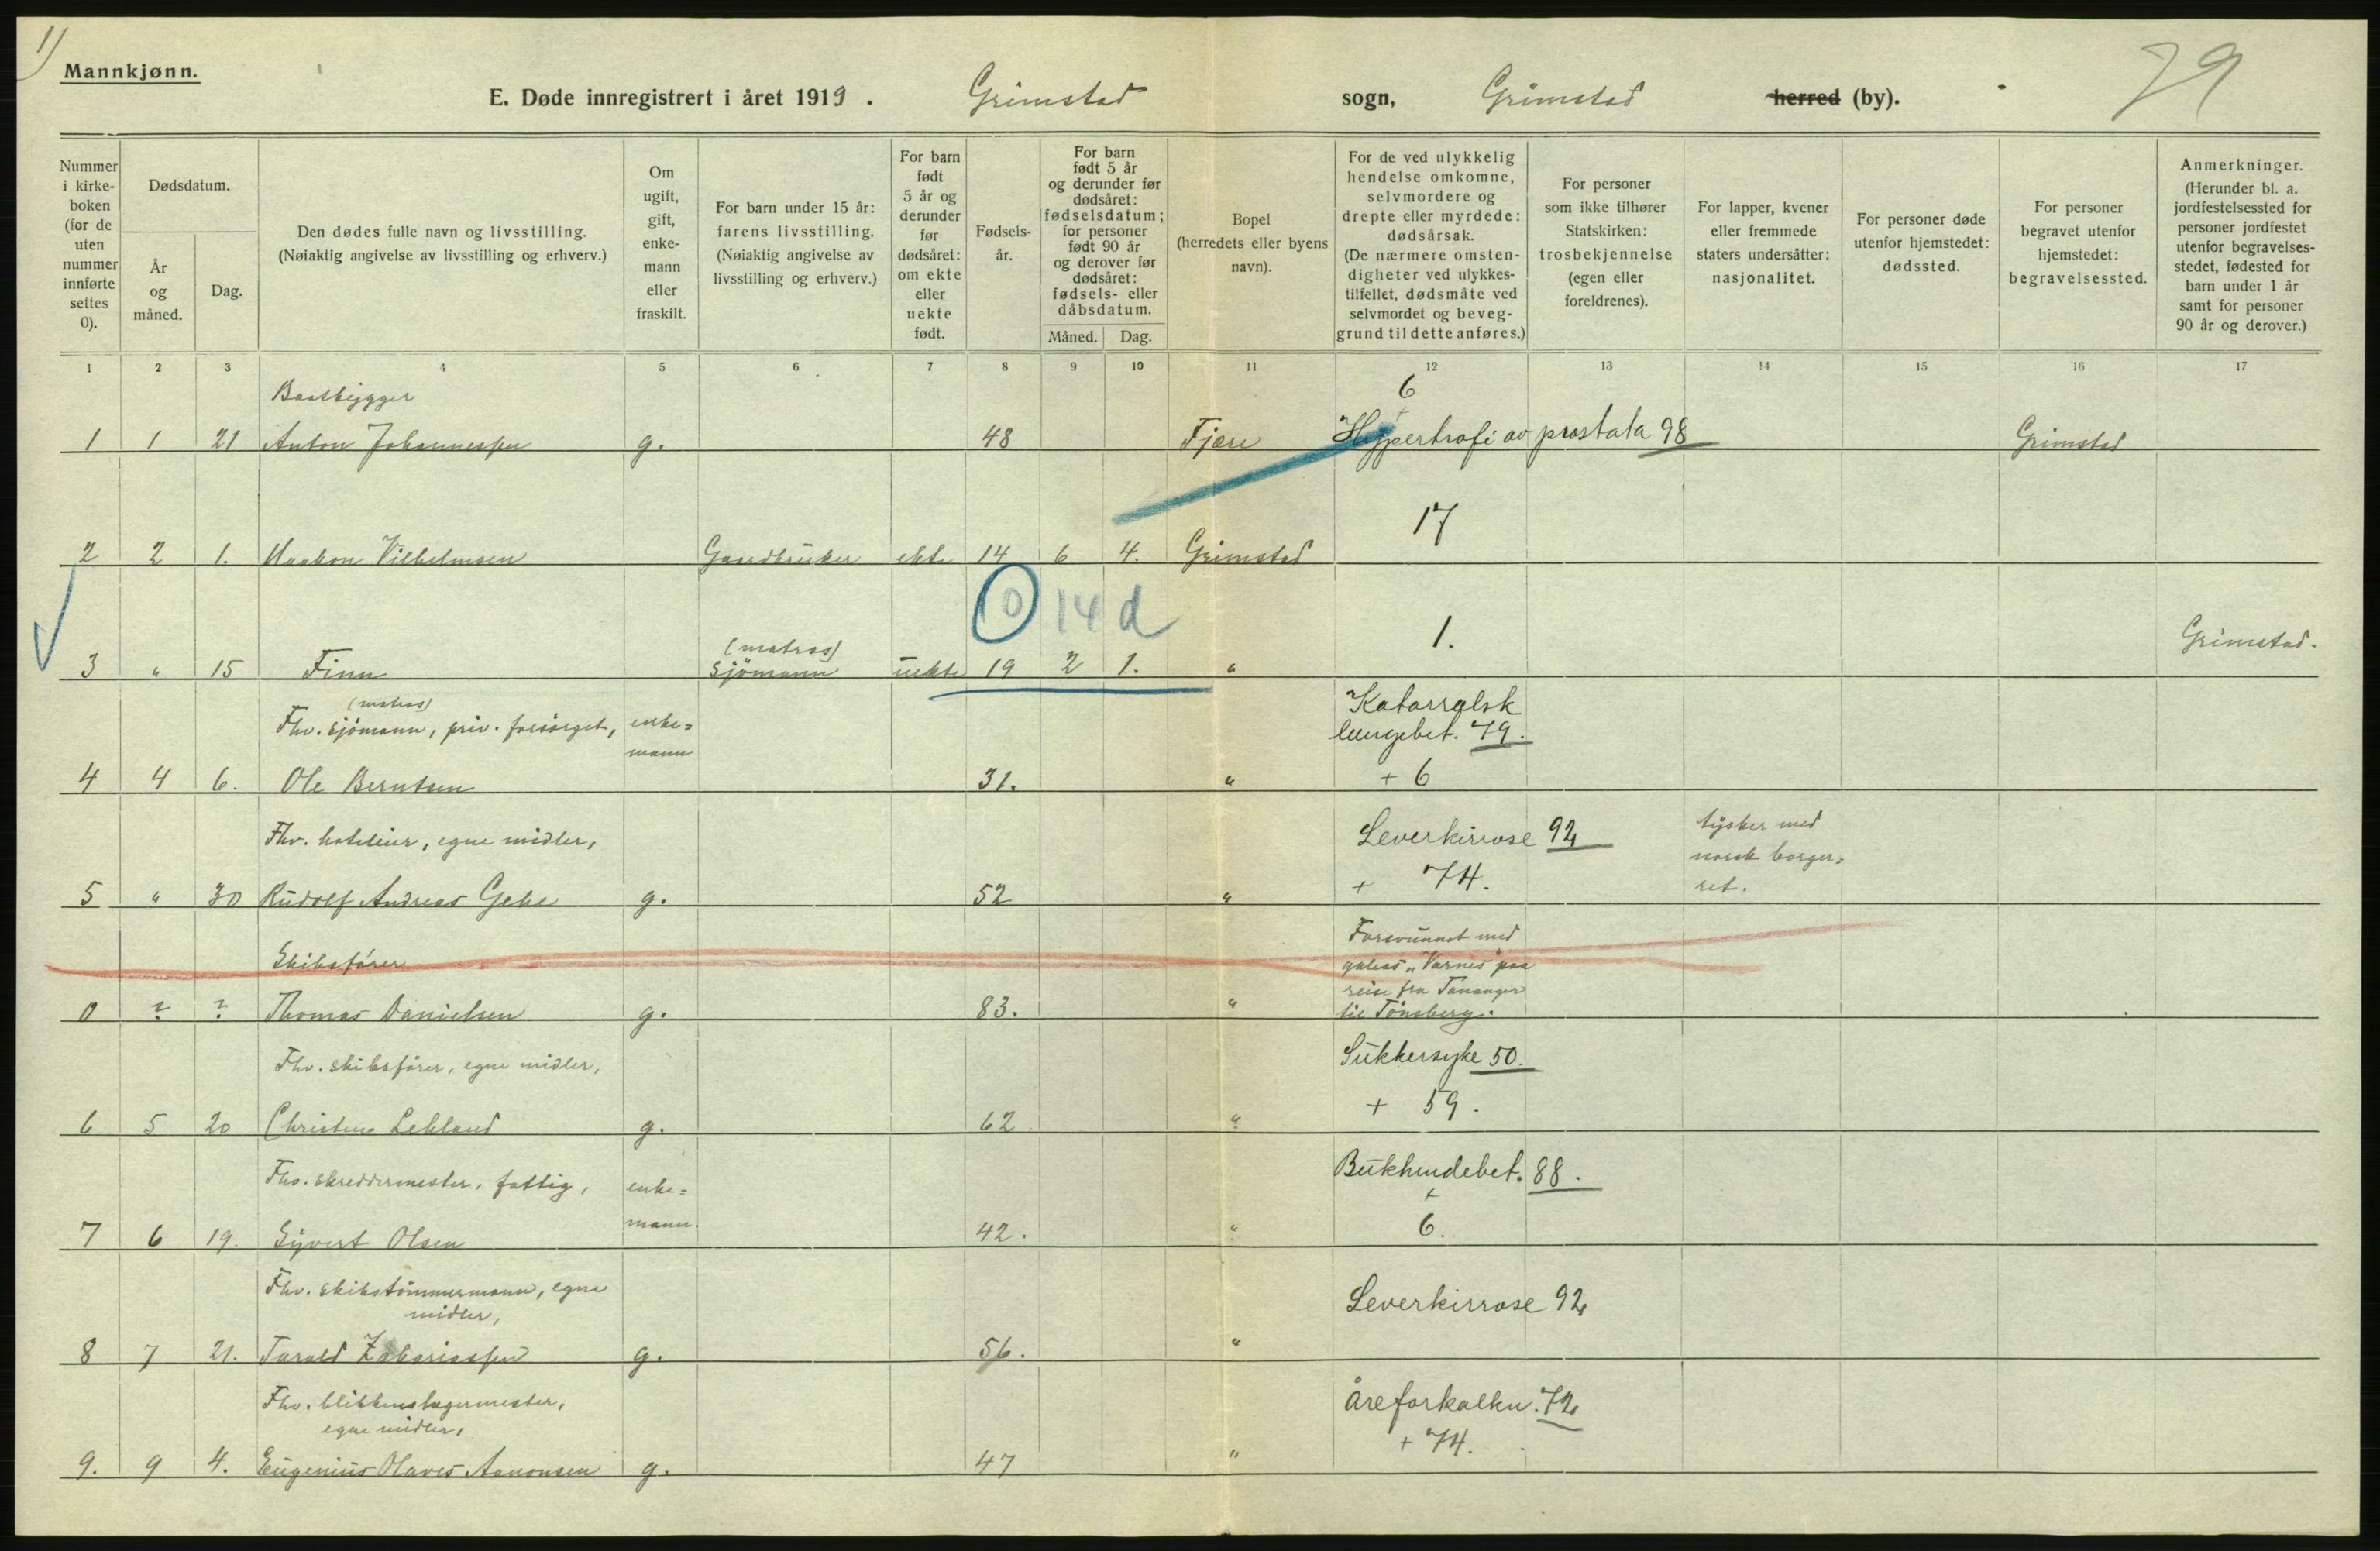 1)
Mannkjønn.
E. Døde innregistrert i året 1919. Grimstad sogn, Grimstad herred (by).
79
Nummer i kirke-boken (for de uten nummer innførte settes 0).
Dødsdatum.
År og måned.
Dag.
Den dødes fulle navn og livsstilling. (Nøiaktig angivelse av livsstilling og erhverv.)
Om ugift, gift, enke-mann eller fraskilt.
For barn under 15 år: farens livsstilling. (Nøiaktig angivelse av livsstilling og erhverv.)
For barn født 5 år og derunder før dødsåret: om ekte eller uekte født.
Fødsels-år.
For barn født 5 år og derunder før dødsåret: fødselsdatum; for personer født 90 år og derover før dødsåret: fødsels- eller dåbsdatum.
Måned. Dag.
Bopel (herredets eller byens navn).
For de ved ulykkelig hendelse omkomne, selvmordere og drepte eller myrdede: dødsårsak. (De nærmere omsten-digheter ved ulykkes-tilfellet, dødsmåte ved selvmordet og beveg-grund til dette anføres.)
For personer som ikke tilhører Statskirken: trosbekjennelse (egen eller foreldrenes).
For lapper, kvener eller fremmede staters undersåtter: nasjonalitet.
For personer døde utenfor hjemstedet: dødssted.
For personer begravet utenfor hjemstedet: begravelsessted.
Anmerkninger. (Herunder bl. a. jordfestelsessted for personer jordfestet utenfor begravelses-stedet, fødested for barn under 1 år samt for personer 90 år og derover.)
1 2 3 4 5 6 7 8 9 10 11 12 13 14 15 16 17
Baatbygger 6
1 1 21 Anton Johannessen g. 48 Fjære Hypertrofi av prostata 98 Grimstad
17
2 2 1. Haakon Vilhelmsen Gaardbruker ekte 14 6 4. Grimstad
0 14 d
(matros) 1. Grimstad.
3 " 15 Finn sjömann uekte 19 2 1. "
(matros) Katarralsk
Fhv. sjömann, priv. forsörget, enke= lungebet. 79.
mann
4 4 6. Ole Berntsen 31. " + 6
Fhv. hoteleier, egne midler, Leverkirrose 92 tysker med
norsk borger=
+ 74. ret.
5 " 30 Rudolf Andreas Gehe g. 52 "
Forsvunnet med
Skibsfører galeas "Varnes" paa
reise fra Tananger
0 ? ? Thomas Danielsen g. 83. " til Tönsberg.
Fhv. skibsfører, egne midler, Sukkersyke 50.
+ 59.
6 5 20 Christen Lekland g. 62 "
Fhv. skreddermester, fattig, enke= Bukhindebet. 88.
mann. +
7 6 19. Syvert Olsen 42. " 6.
Fhv. skibstömmermann, egne
midler, Leverkirrose 92
8 7 21. Tarald Zakariassen g. 56. "
Fhv. blikkenslagermester, Åreforkalkn. 72
egne midler, + 74.
9. 9 4. Eugenius Olaves Aanonsen g. 47 "